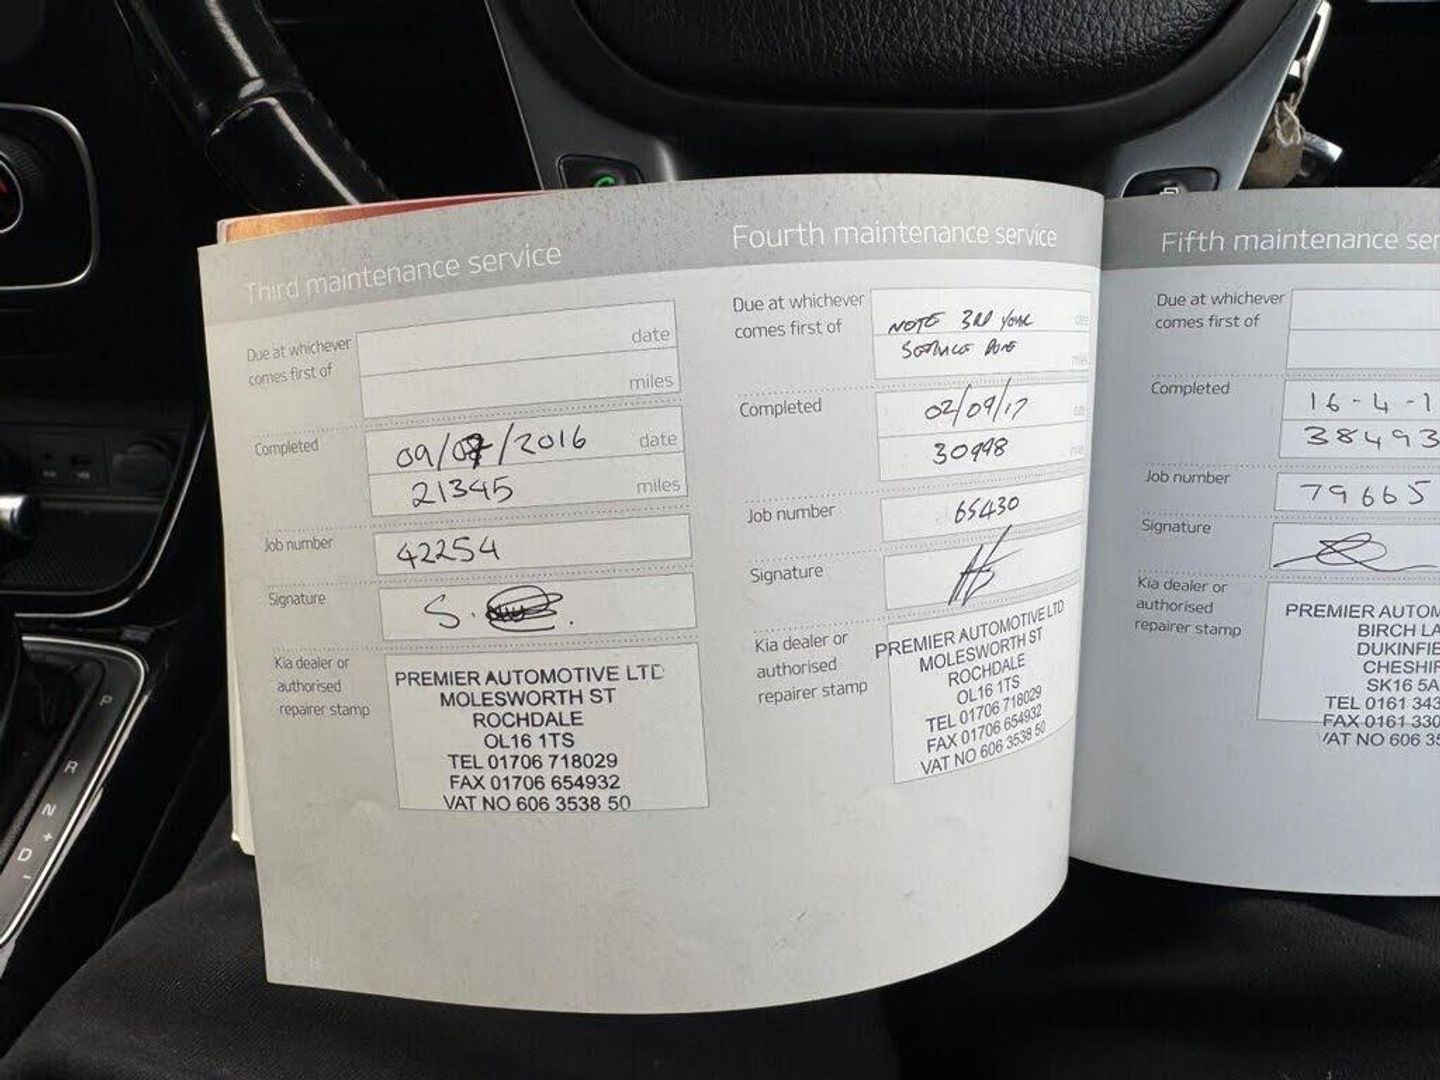 Third maintenance service
Due at whichever
comes first of
date
miles
Completed
09/07/2016 date
21345 miles
Job number
42254
Signature
Kia dealer or
authorised
repairer stamp
PREMIER AUTOMOTIVE LTD
MOLESWORTH ST
ROCHDALE
OL16 1TS
TEL 01706 718029
FAX 01706 654932
VAT NO 606 3538 50
Fourth maintenance service
Due at whichever
comes first of
NOTE 3RD YEAR date
SERVICE DONE miles
Completed
02/09/17 date
30998 miles
Job number
65430
Signature
Kia dealer or
authorised
repairer stamp
PREMIER AUTOMOTIVE LTD
MOLESWORTH ST
ROCHDALE
OL16 1TS
TEL 01706 718029
FAX 01706 654932
VAT NO 606 3538 50
Fifth maintenance ser
Due at whichever
comes first of
Completed
16-4-1
38493
Job number
79665
Signature
Kia dealer or
authorised
repairer stamp
PREMIER AUTOM
BIRCH LA
DUKINFIE
CHESHIR
SK16 5A
TEL 0161 343
FAX 0161 330
VAT NO 606 35
P
R
N
+
D
-